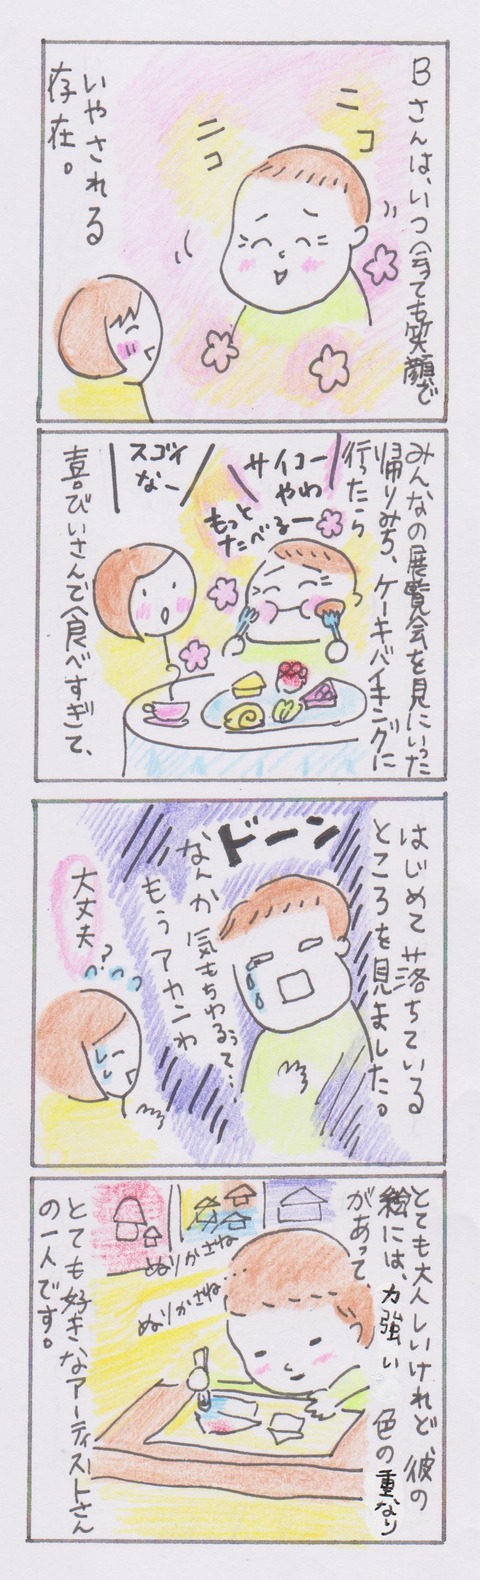 Bさんは、いつ会っても笑顔で
ニコ
ニコ
いやされる
存在。
みんなの展覧会を見にいった
帰りみち、ケーキバイキングに
行ったら
サイコー
やわ
もっと
たべるー
スゴイ
なー
喜びいさんで食べすぎて、
はじめて落ちている
ところを見ました。
ドーン
なんか気もちわるぅて…
もうアカンわ
大丈夫
?
とても大人しいけれど、彼の
絵には、力強い色の重なり
があって、
ぬりかさね…
ぬりかさね…
とても好きなアーティストさん
の一人です。